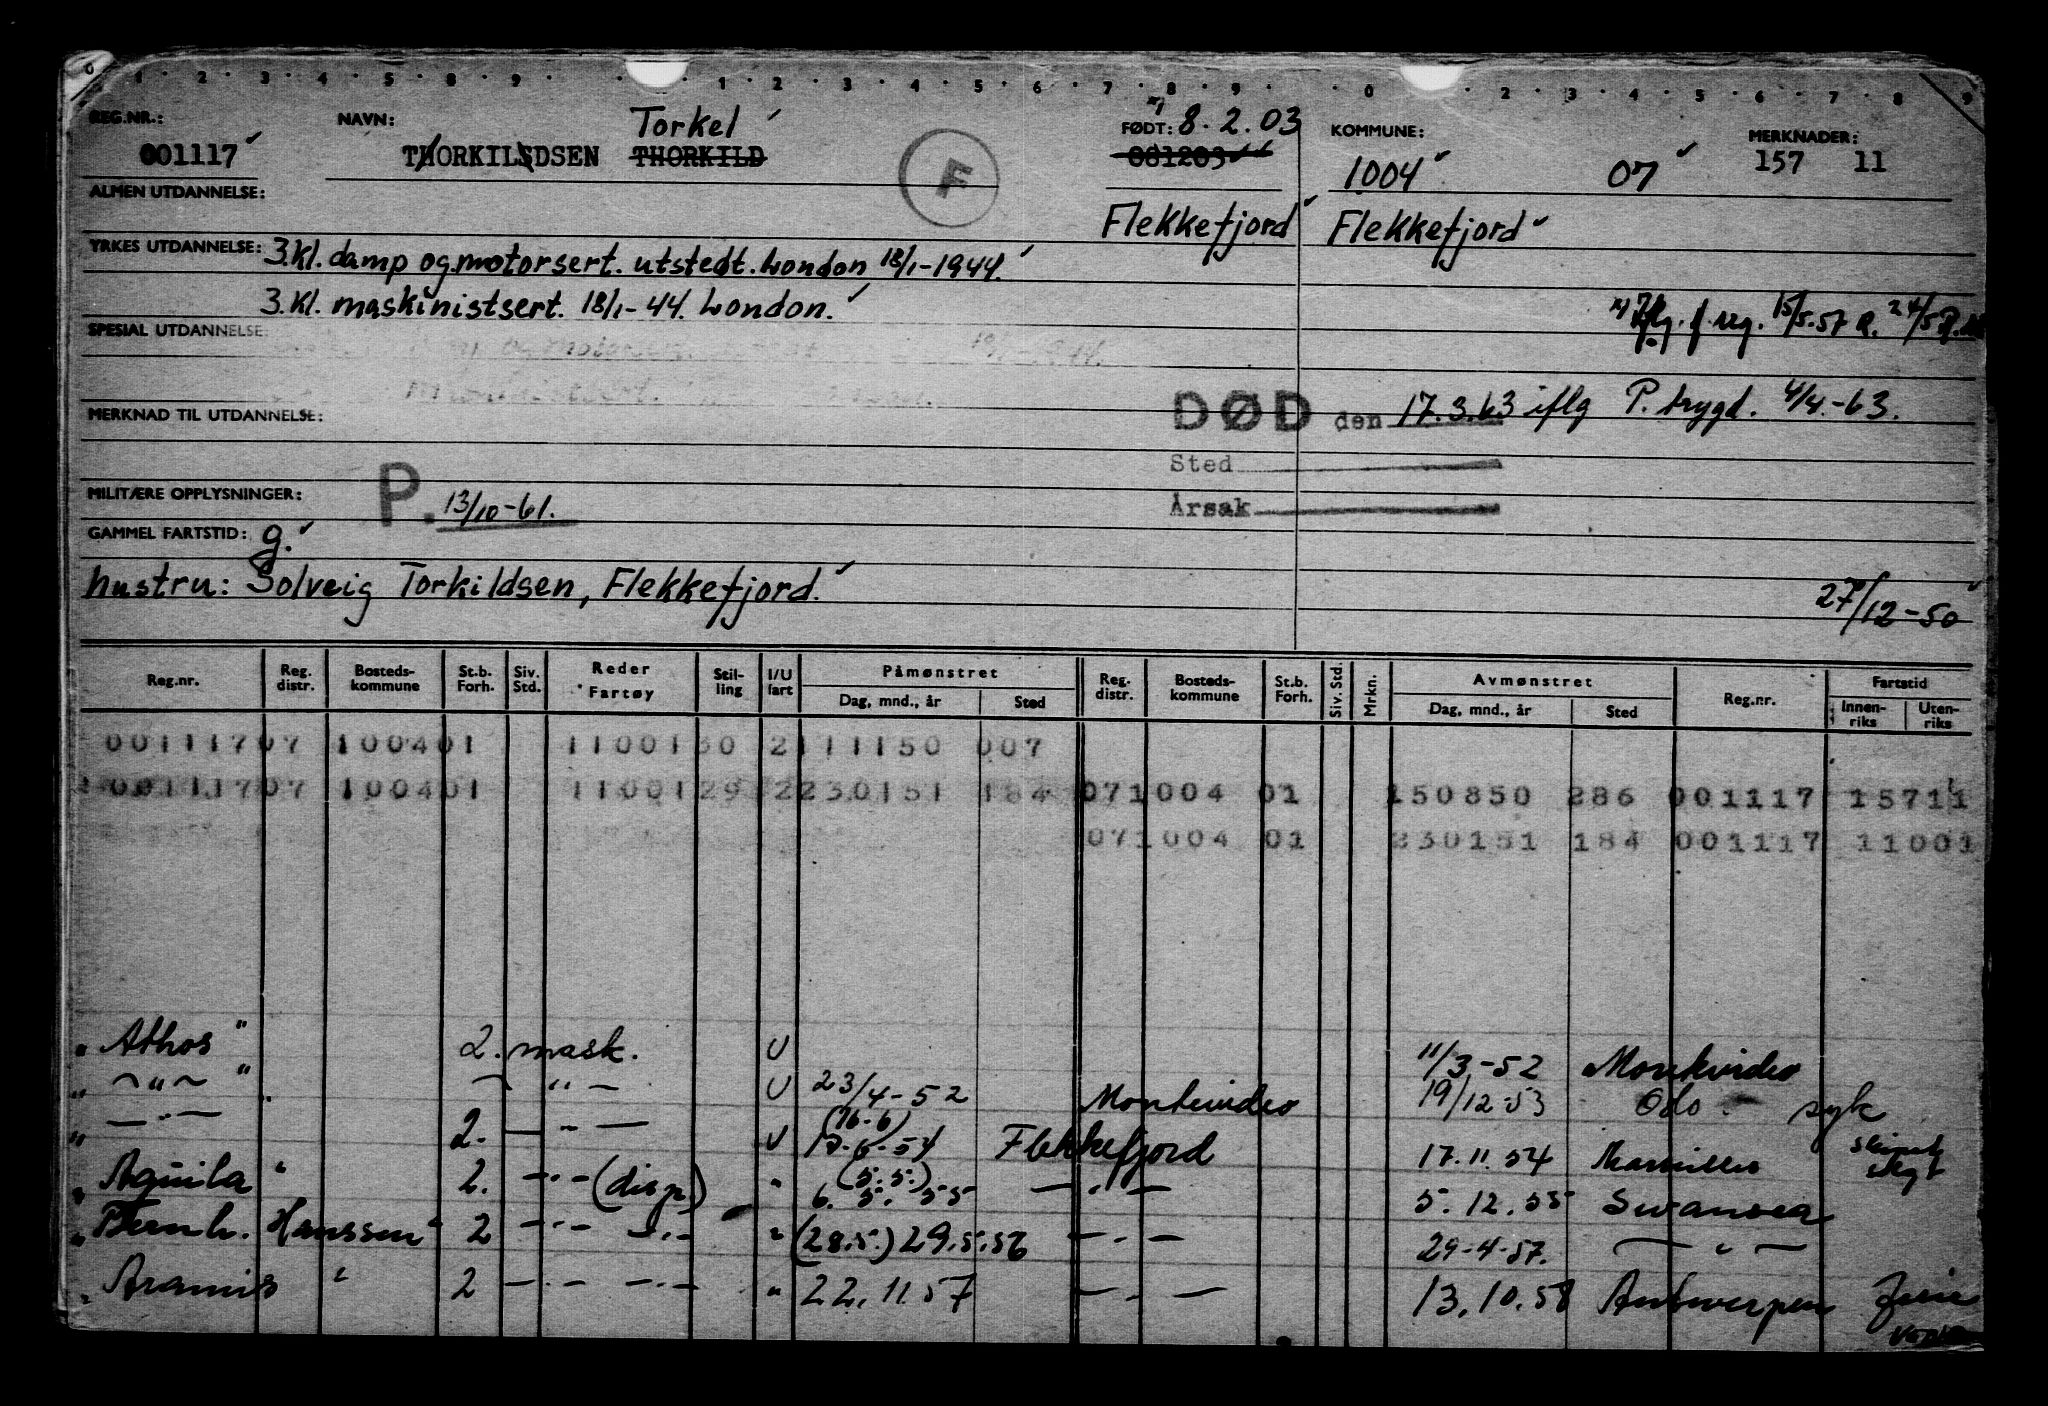 REG.NR.: NAVN: Torkel FØDT: 8.2.03 KOMMUNE: MERKNADER:
001117 THORKILSDSEN THORKILD F 081203 1004 07 157 11
ALMEN UTDANNELSE:
Flekkefjord Flekkefjord
YRKES UTDANNELSE: 3.kl. damp og motorsert. utstedt. London 18/1-1944.
3.kl. maskinistsert. 18/1-44. London.
15/5-57 R. 24/5
SPESIAL UTDANNELSE:
MERKNAD TIL UTDANNELSE:
DØD den 17.3.63 iflg P. trygd. 4/4.-63.
Sted
Årsak
MILITÆRE OPPLYSNINGER: P. 13/10-61.
GAMMEL FARTSTID: g.
hustru: Solveig Torkildsen, Flekkefjord.
27/12-50
Reg.nr. Reg. distr. Bosteds-kommune St.b. Forh. Siv. Std. Reder Fartøy Stil-ling I/U fart Påmønstret Dag, mnd., år Sted Reg. distr. Bosteds-kommune St.b. Forh. Siv. Std. Mrkn. Avmønstret Dag, mnd., år Sted Reg.nr. Fartstid Innen-riks Uten-riks
001117 07 1004 01 11001 30 2 111150 007
001117 07 1004 01 11001 29 2 230151 184 07 1004 01 150850 286 001117 15711
07 1004 01 230151 184 001117 11001
" Athos " 2. mask. U 11/3-52 Montevideo
" — " — " — " — U 23/4-52 Montevideo 19/12-53 Oslo. syk
" — " — 2. — " — U (16-6) 17-6-54 Flekkefjord 17.11.54 Marseilles
" Aquila " 2. — " — (disp) " (5.5.) 6. 5. 55 — " — 5. 12. 55 Swansea
" Bernh. Hanssen " 2 — " — — " — " (28.5.) 29.5.56 — " — 29-4-57. — " —
" Aramis " 2 — " — — " — " 22. 11. 57 — " — 13. 10. 58 Antwerpen